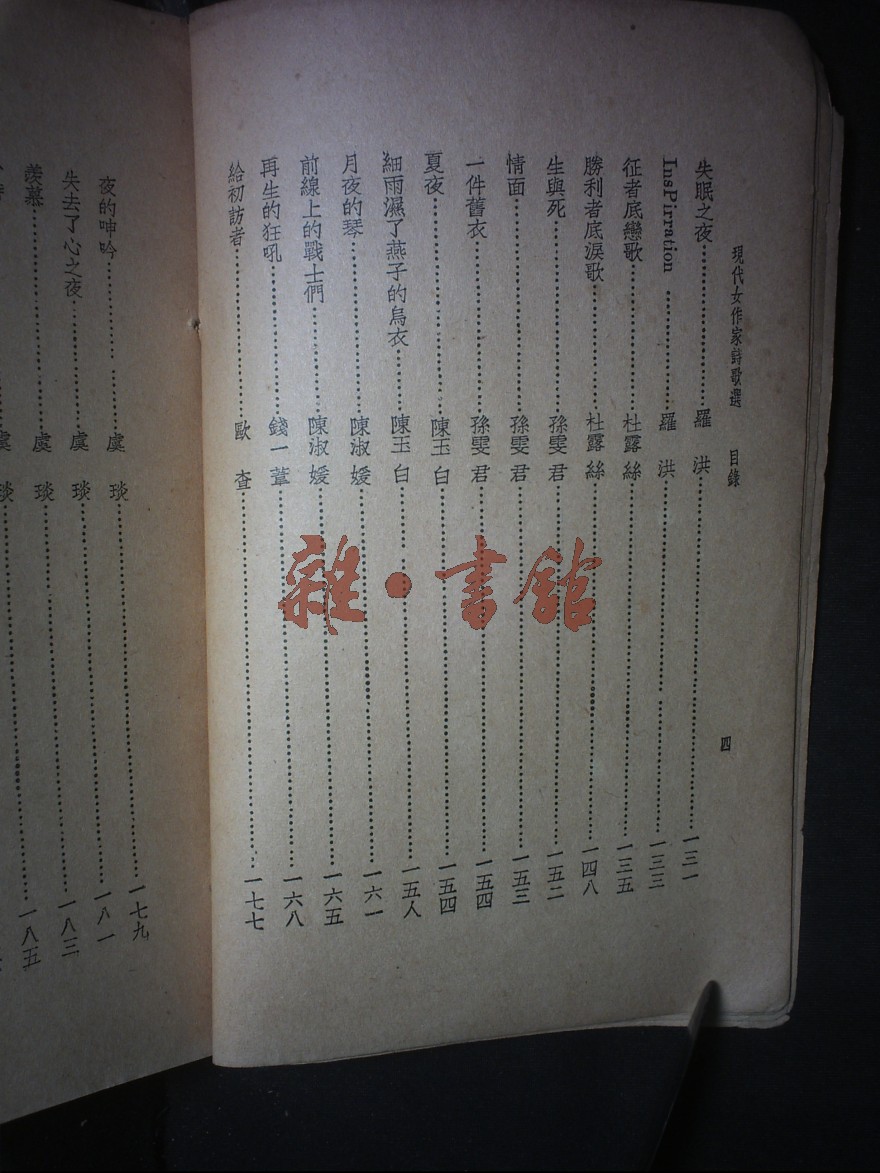 現代女作家詩歌選 目錄 四
失眠之夜……羅洪……一三一
InsPirration……羅洪……一三三
征者底戀歌……杜露絲……一三五
勝利者底淚歌……杜露絲……一四八
生與死……孫雯君……一五二
情面……孫雯君……一五三
一件舊衣……孫雯君……一五四
夏夜……陳玉白……一五四
細雨濕了燕子的烏衣……陳玉白……一五人
月夜的琴……陳淑媛……一六一
前線上的戰士們……陳淑媛……一六五
再生的狂吼……錢一葦……一六八
給初訪者……歐查……一七七
夜的呻吟……虞琰……一七九
失去了心之夜……虞琰……一八一
羨慕……虞琰……一八三
虞琰……一八五
雜·書館